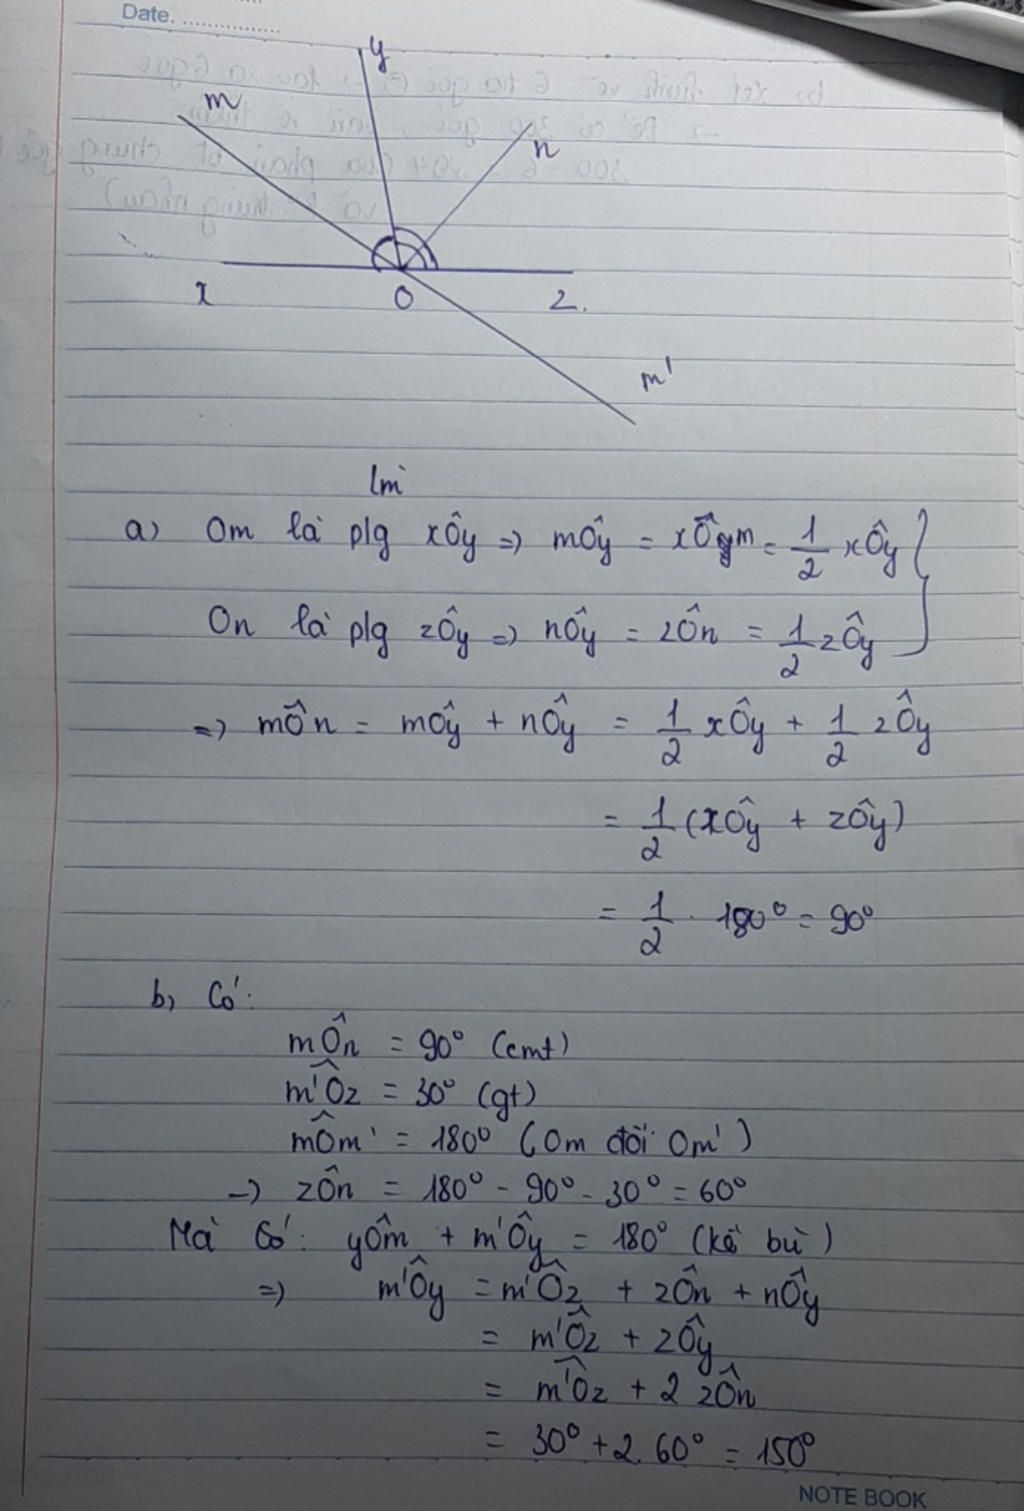 Date. ................
y
m
n
x
O
z
m'
lm
a) Om là plg xÔy => mÔy = xÔm = 1/2 xÔy }
On là plg zÔy => nÔy = zÔn = 1/2 zÔy
=> mÔn = mÔy + nÔy = 1/2 xÔy + 1/2 zÔy
= 1/2 (xÔy + zÔy)
= 1/2 . 180° = 90°
b, Có:
mÔn = 90° (cmt)
m'Ôz = 30° (gt)
mÔm' = 180° (Om đối Om')
-> zÔn = 180° - 90° - 30° = 60°
Mà Có: yÔm + m'Ôy = 180° (kề bù)
=> m'Ôy = m'Ôz + zÔn + nÔy
= m'Ôz + zÔy
= m'Ôz + 2 zÔn
= 30° + 2. 60° = 150°
NOTE BOOK